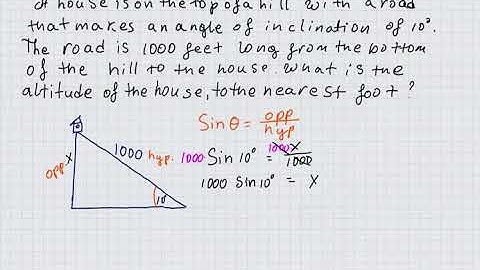 A house is on the top of a hill with a road
that makes an angle of inclination of 10°.
The road is 1000 feet long from the bottom
of the hill to the house. What is the
altitude of the house, to the nearest foot?
Sin θ = opp/hyp
opp x 1000 hyp. 10°
1000 Sin 10° = 1000 x/1000
1000 Sin 10° = x